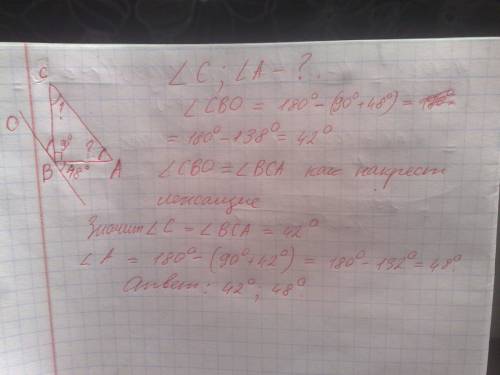 ∠C; ∠A - ?.
∠CBO = 180° - (90° + 48°) =
= 180° - 138° = 42°
∠CBO = ∠BCA как накрест
лежащие
Значит ∠C = ∠BCA = 42°
∠A = 180° - (90° + 42°) = 180° - 132° = 48°.
Ответ: 42°, 48°
C
?
O
90°
?
B
48°
A